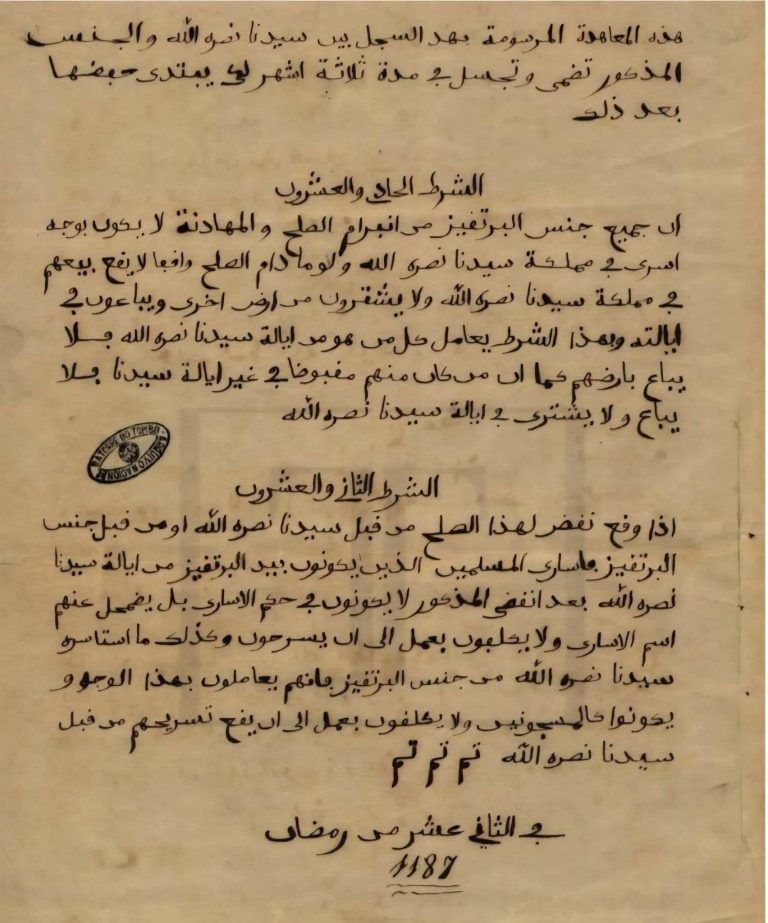 هذه المعاهدة المرسومة بهد السجل بين سيدنا نصره الله والجنس
المذكور تضمى وتجسل في مدة ثلاثة اشهر لكي يبتدى حفضها
بعد ذلك
الشرط الحادي والعشرون
ان جميع جنس البرتفيز من انبرام الصلح والمهادنة لا يكون بوجه
اسرى في مملكة سيدنا نصره الله ولو ما دام الصلح واقعا لا يقع بيعهم
في مملكة سيدنا نصره الله ولا يشترون من ارض اخرى ويباعون في
ايالته وبهذا الشرط يعامل كل من هو من ايالة سيدنا نصره الله فلا
يباع بارضهم كما ان من كان منهم مقبوضا في غير ايالة سيدنا فلا
يباع ولا يشترى في ايالة سيدنا نصره الله
ARQUIVO NACIONAL DA TORRE DO TOMBO
الشرط الثاني والعشرون
اذا وقع نقض لهذا الصلح من قبل سيدنا نصره الله او من قبل جنس
البرتفيز فاسارى المسلمين الذين يكونون بيد البرتفيز من ايالة سيدنا
نصره الله بعد انقضى المذكور لا يكونون في حكم الاسارى بل يضمحل عنهم
اسم الاسارى ولا يكلبون بعمل الى ان يسرحون وكذلك ما استاسره
سيدنا نصره الله من جنس البرتفيز فانهم يعاملون بهذا الوجه و
يكونوا كالمسجونين ولا يكلفون بعمل الى ان يقع تسريحهم من قبل
سيدنا نصره الله تم تم تم
في الثاني عشر من رمضان
1187